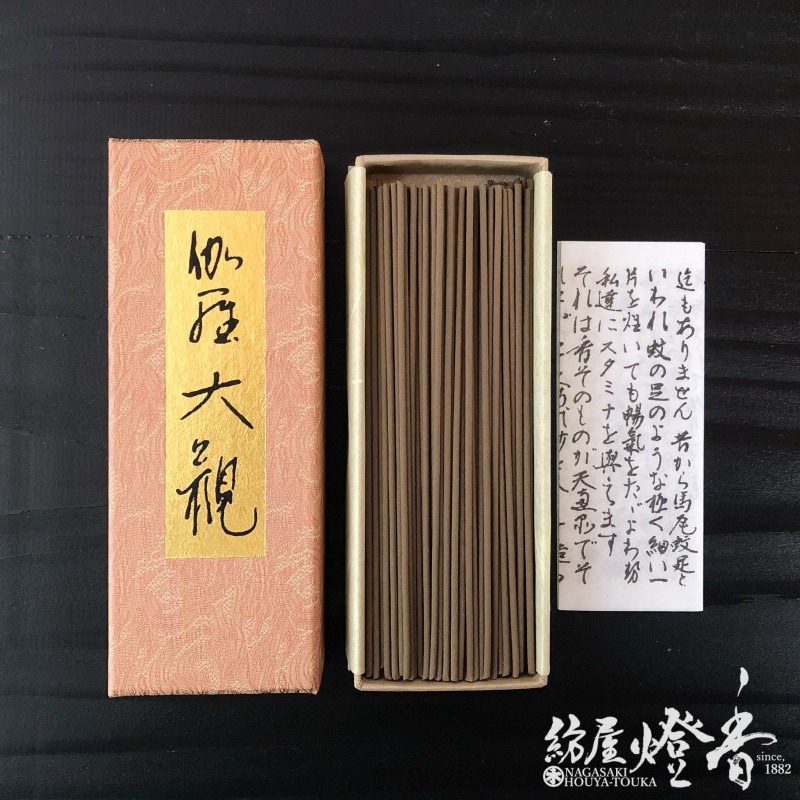 伽羅大観
迄もありません 昔から馬尾蚊足と
いわれ蚊の足のような極く細い一
片を炷いても暢氣をたゞよわ
私達にスタミナを與えます
それは香そのものが天でそ
紡屋燈香
NAGASAKI
HOUYA-TOUKA
since,
1882